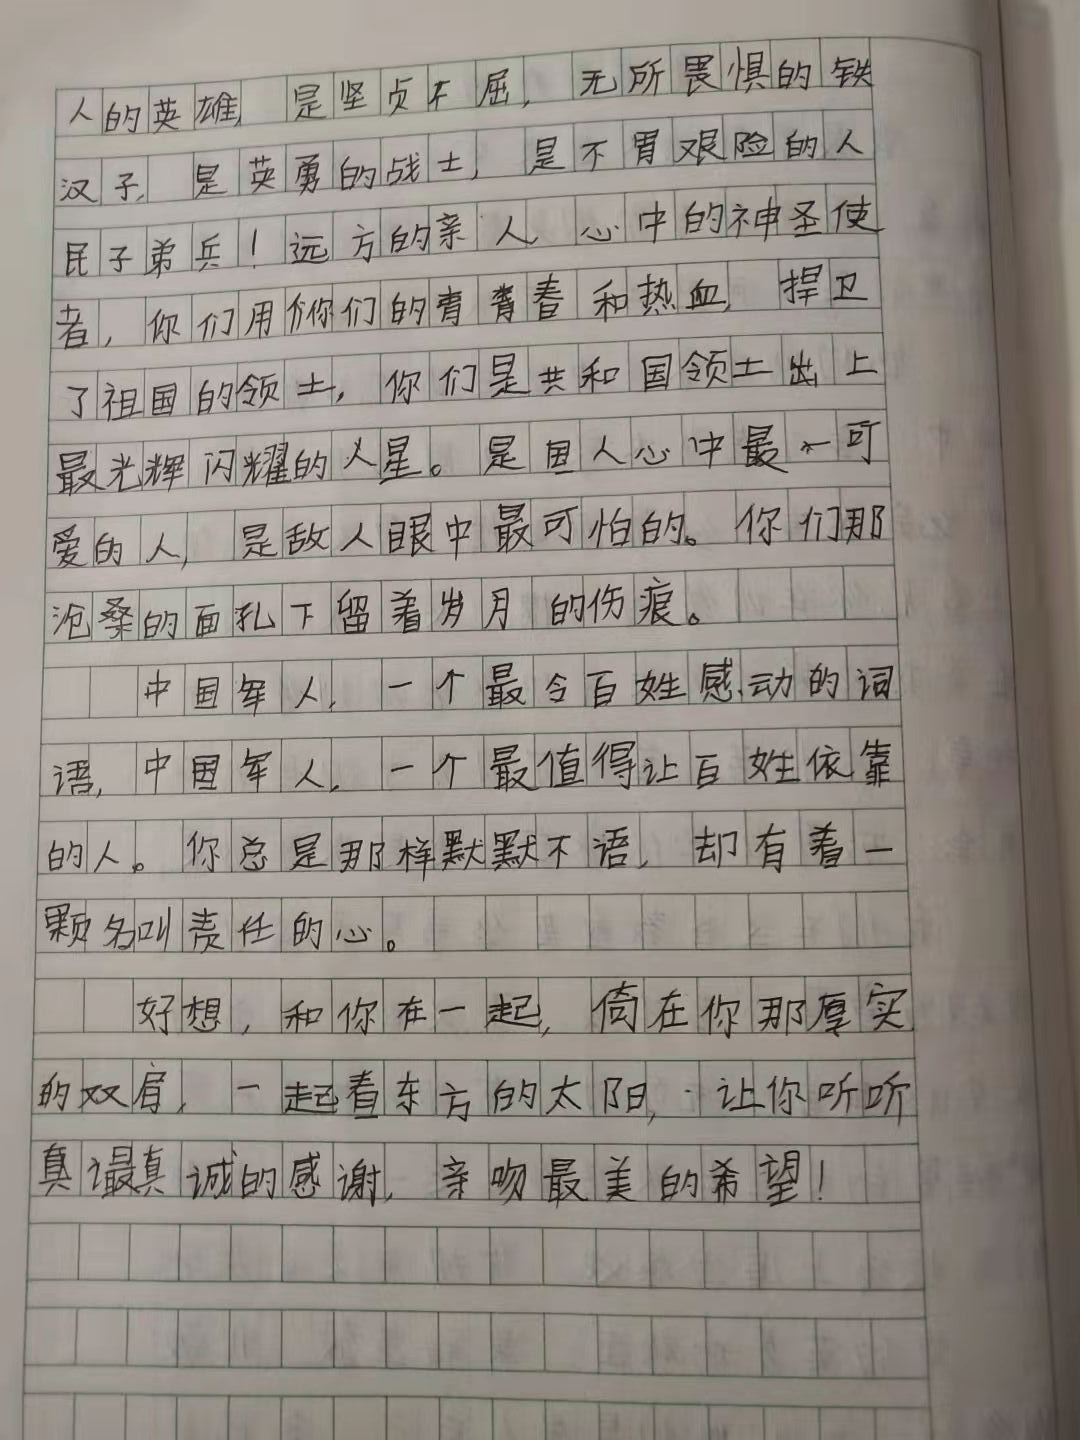 人的英雄,是坚贞不屈,无所畏惧的铁
汉子,是英勇的战士,是不胃艰险的人
民子弟兵!远方的亲人,心中的神圣使
者,你们用你们的青春和热血,捍卫
了祖国的领土,你们是共和国领土出上
最光辉闪耀的火星。是国人心中最可
爱的人,是敌人眼中最可怕的。你们那
沧桑的面孔下留着岁月的伤痕。
中国军人,一个最令百姓感动的词
语,中国军人,一个最值得让百姓依靠
的人。你总是那样默默不语,却有着一
颗名叫责任的心。
好想,和你在一起,倚在你那厚实
的双肩,一起看东方的太阳,让你听听
真最真诚的感谢,亲吻最美的希望!